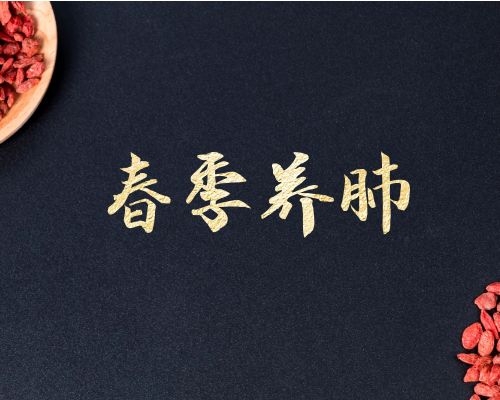 春季养肺